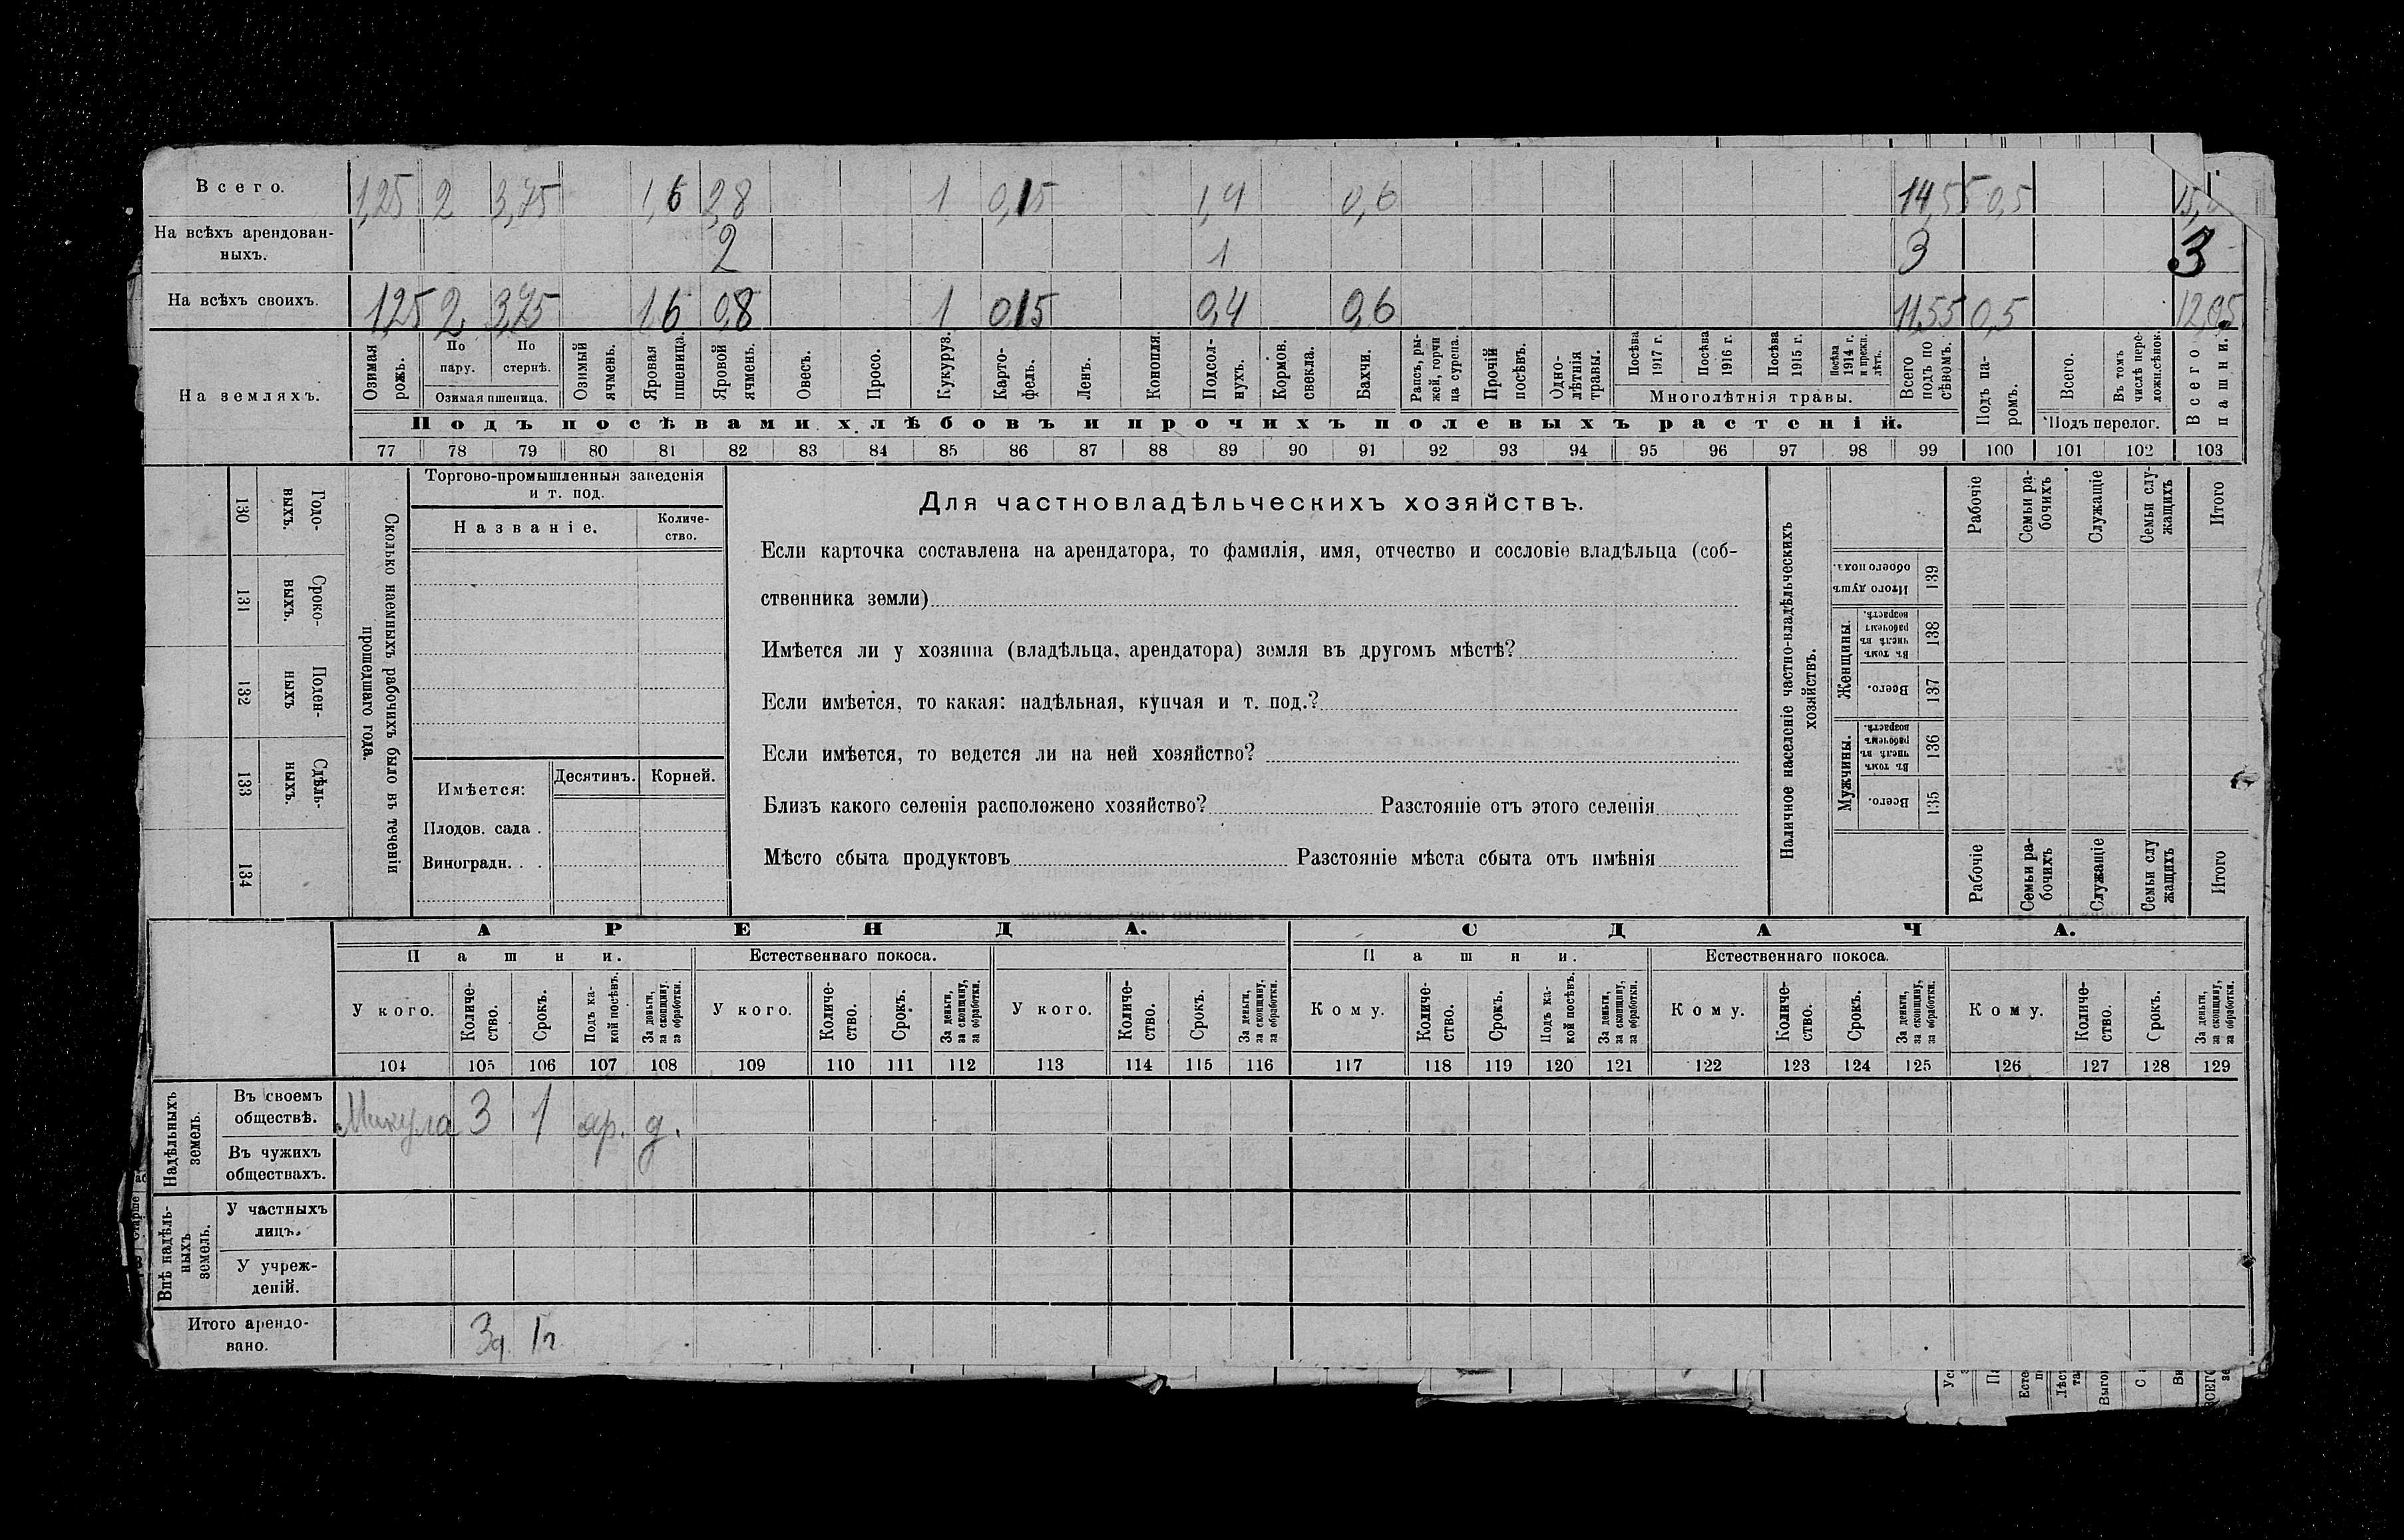 Всего. 1,25 2 3,75 1,6 2,8 1 0,15 1,4 0,6 14,55 0,5
На всѣхъ арендован-
ныхъ. 2 1 3 3
На всѣхъ своихъ. 1,25 2 3,75 1,6 0,8 1 0,15 0,4 0,6 11,55 0,5 12,05
На земляхъ.
Озимая рожь.
По пару.
По стернѣ.
Озимая пшеница.
Озимый ячмень.
Яровая пшеница.
Яровой ячмень.
Овесъ.
Просо.
Кукуруз.
Карто-
фель.
Ленъ.
Конопля.
Подсол-
нухъ.
Кормов. свекла.
Бахчи.
Рапсъ, ры-
жей, горчи
ца сурепа.
Прочій посѣвъ.
Одно-
лѣтнія травы.
Посѣва 1917 г.
Посѣва 1916 г.
Посѣва 1915 г.
Посѣва 1914 г. и прежн. лѣтъ.
Многолѣтнія травы.
Всего подъ по
сѣвомъ.
Подъ па-
ромъ.
Всего.
Въ томъ числѣ пере-
ложн.сѣнок.
Подъ перелог.
Всего пашни.
Подъ посѣвами хлѣбовъ и прочихъ полевыхъ растеній.
77 78 79 80 81 82 83 84 85 86 87 88 89 90 91 92 93 94 95 96 97 98 99 100 101 102 103
130 Годо-
ныхъ.
131 Сроко-
ныхъ.
132 Поден-
ныхъ
133 Сдѣль-
ныхъ.
134
Сколько наемныхъ рабочихъ было въ теченіи
прошедшаго года.
Торгово-промышленныя заведенія
и т. под.
Названіе.
Количе-
ство.
Имѣется:
Десятинъ. Корней.
Плодов. сада .
Виноградн. . .
Для частновладѣльческихъ хозяйствъ.
Если карточка составлена на арендатора, то фамилія, имя, отчество и сословіе владѣльца (соб-
ственника земли)
Имѣется ли у хозяина (владѣльца, арендатора) земля въ другомъ мѣстѣ?
Если имѣется, то какая: надѣльная, купчая и т. под.?
Если имѣется, то ведется ли на ней хозяйство?
Близъ какого селенія расположено хозяйство? Разстояніе отъ этого селенія
Мѣсто сбыта продуктовъ Разстояніе мѣста сбыта отъ имѣнія
Наличное населеніе частно-владѣльческихъ
хозяйствъ.
Рабочіе
Семьи ра-
бочихъ
Служащіе
Семьи слу-
жащихъ
Итого
Итого душъ обоего пола. 139
Женщины.
Въ томъ числѣ въ рабочемъ возрастѣ. 138
Всего. 137
Мужчины.
Въ томъ числѣ въ рабочемъ возрастѣ. 136
Всего. 135
Рабочіе
Семьи ра-
бочихъ
Служащіе
Семьи слу
жащихъ
Итого
АРЕНДА. СДАЧА.
Пашни. Естественнаго покоса. Пашни. Естественнаго покоса.
У кого.
Количе-
ство.
Срокъ.
Подъ ка-
кой посѣвъ.
За деньги,
за скопщину.
за обработки.
У кого.
Количе-
ство.
Срокъ.
За деньги,
за скопщину,
за обработки.
У кого.
Количе-
ство.
Срокъ.
За деньги,
за скопщину,
за обработки.
Кому.
Количе-
ство.
Срокъ.
Подъ ка-
кой посѣвъ.
За деньги,
за скопщину,
за обработки.
Кому.
Количе-
ство.
Срокъ.
За деньги,
за скопщину,
за обработки.
Кому.
Количе-
ство.
Срокъ.
За деньги,
за скопщину,
за обработки.
104 105 106 107 108 109 110 111 112 113 114 115 116 117 118 119 120 121 122 123 124 125 126 127 128 129
Надѣльныхъ
земель.
Въ своемъ
обществѣ. Микула 3 1 яр. д.
Въ чужихъ
обществахъ.
Внѣ надѣль-
ныхъ
земель.
У частныхъ
лицъ.
У учреж-
деній.
Итого арендо-
вано. 3д. 1г.